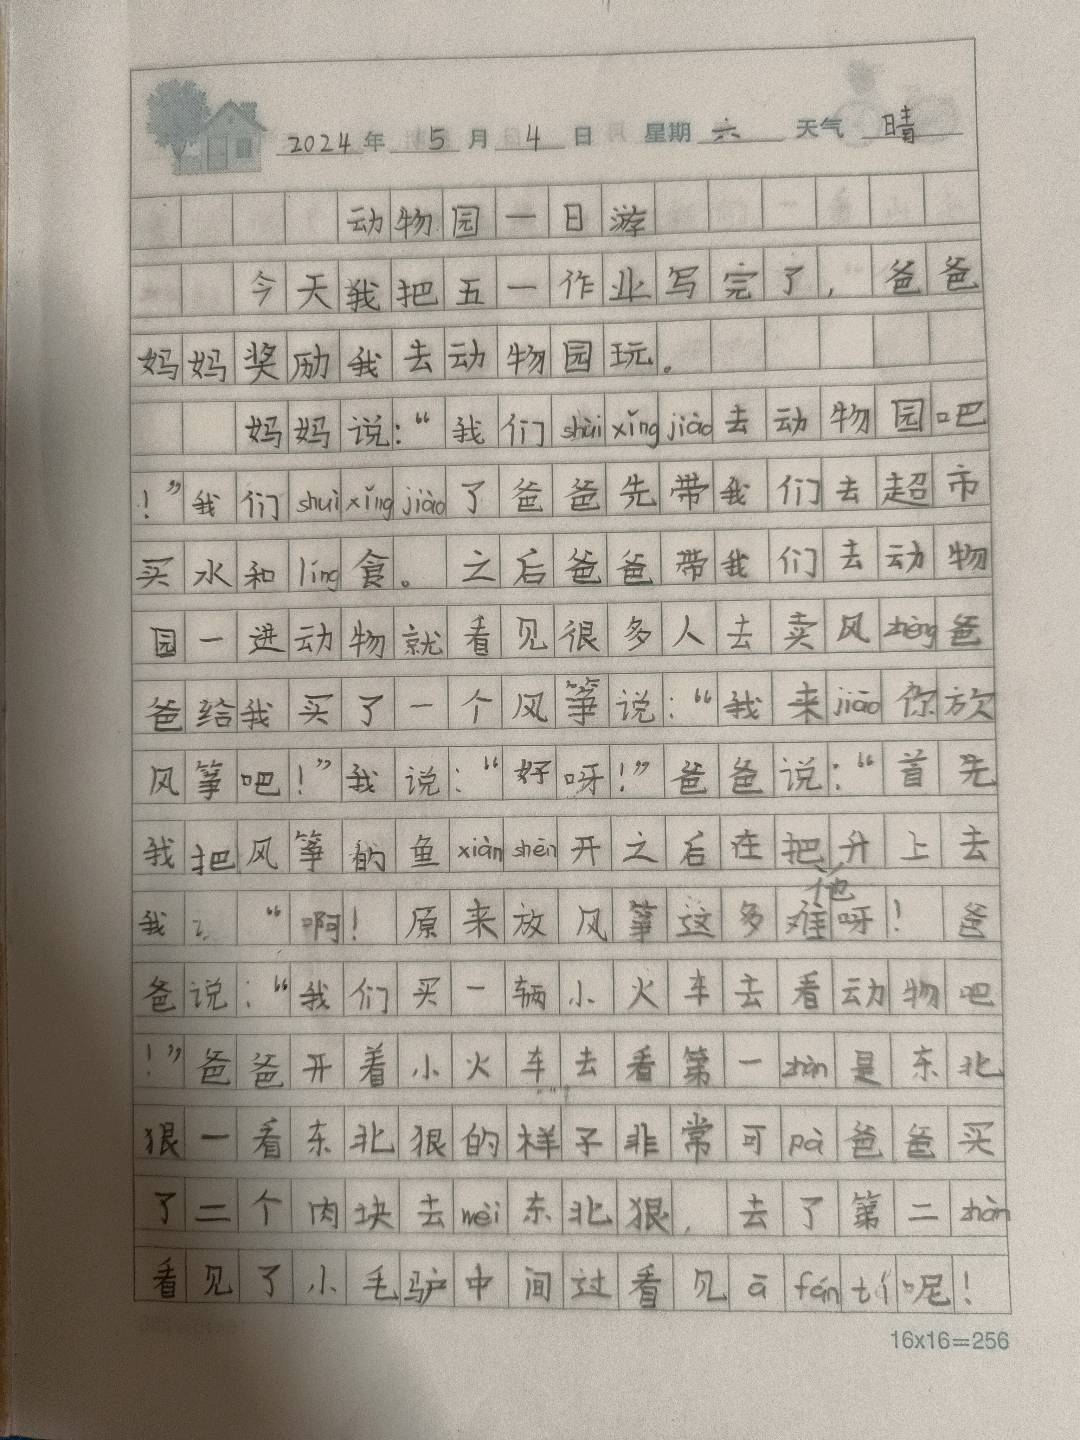 2024年 5月 4日 星期六 天气 晴
动物园一日游
今天我把五一作业写完了，爸爸
妈妈奖励我去动物园玩。
妈妈说：“我们shùi xǐng jiào去动物园吧
！”我们shuì xǐng jiào了爸爸先带我们去超市
买水和líng食。之后爸爸带我们去动物
园一进动物就看见很多人去卖风zhēng爸
爸给我买了一个风筝说：“我来jiāo你放
风筝吧！”我说：“好呀！”爸爸说：“首先
我把风筝的鱼xiàn shēn开之后在把他升上去
我：“啊！原来放风筝这多难呀！爸
爸说：“我们买一辆小火车去看动物吧
！”爸爸开着小火车去看第一zhàn是东北
狠一看东北狠的样子非常可pà爸爸买
了二个肉块去wèi东北狠，去了第二zhàn
看见了小毛驴中间过看见ā fán tí呢！
16x16=256